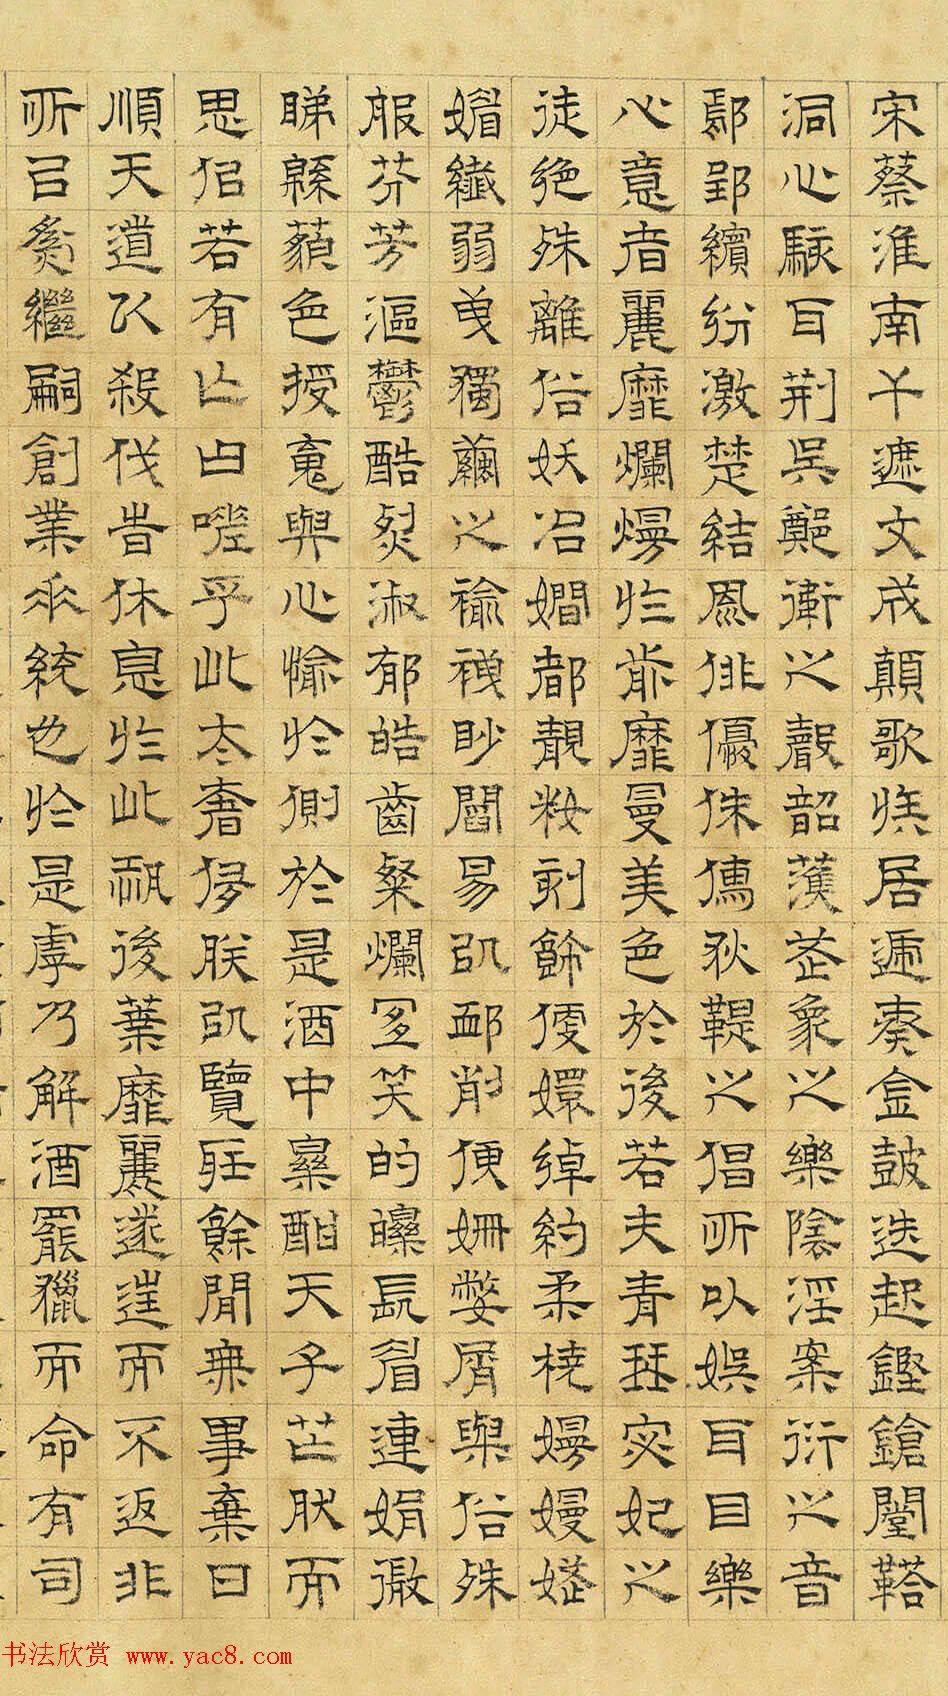 宋蔡淮南于遮文成顛歌族居遞奏金鼓迭起鏗鎗闛鞈
洞心駭耳荆吳鄭衛之聲韶濩武象之樂陰淫案衍之音
鄢郢繽紛激楚結風俳優侏儒狄鞮之倡所以娛耳目樂
心意者麗靡爛熳於前靡曼美色於後若夫青琴宓妃之
徒絕殊離俗妖冶嫺都靚糚刻飾便嬛綽約柔橈嫚嫚
媚纖弱曳獨繭之褕袘眇閻易以卹削便姍嫳屑與俗殊
服芬芳漚鬱酷烈淑郁皓齒粲爛宜笑的皪長眉連娟微
睇緜藐色授䰟與心愉於側於是酒中樂酣天子芒肰而
思佀若有亾曰嗟乎此太奢侈朕以覽聽餘閒無事棄日
順天道以殺伐昔休息於此恐後葉靡麗遂往而不返非
所以爲繼嗣創業垂統也於是虖乃解酒罷獵而命有司
书法欣赏 www.yac8.com